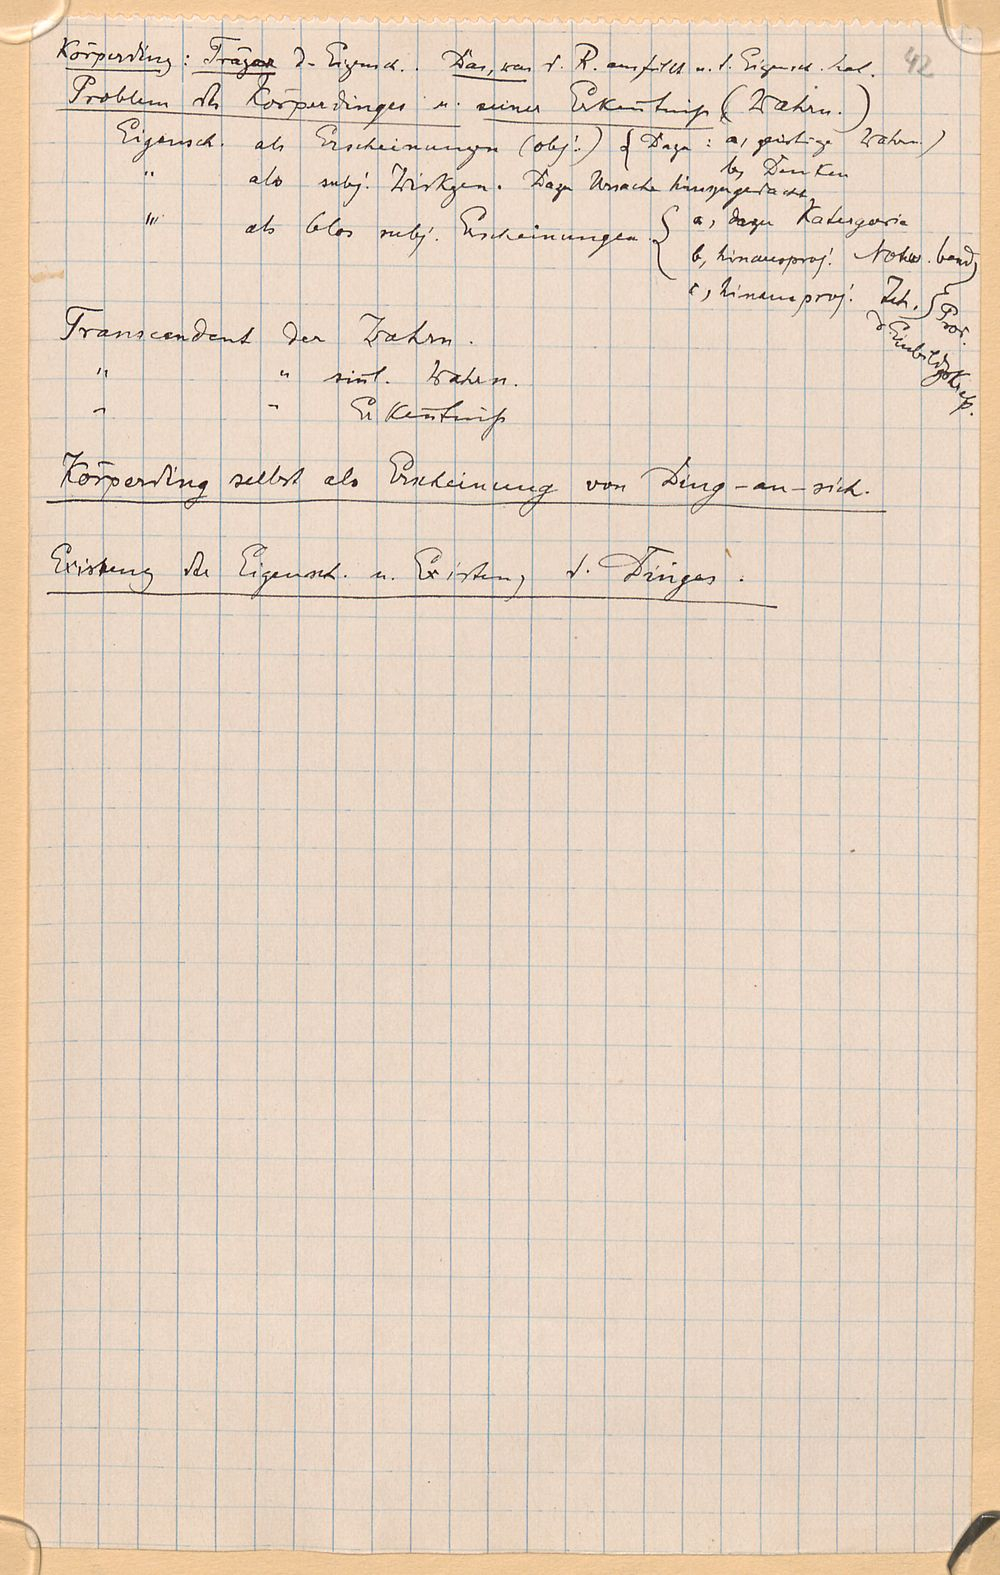 42
Körperding: Träger d. Eigensch. Das, was d. R. ausfüllt u. d. Eigensch. hat.
Problem des Körperdinges u. seiner Erkenntniß (Wahrn.)
Eigensch. als Erscheinungen (obj.) { Dazu: a, geistige Wahrn.)
b, Denken
" als subj. Wirkgen. Dazu Ursache hinzugedacht.
" als blos subj. Erscheinungen { a, dazu Kategorie
b, hinausproj. Notw. band }
c, hinausproj. Ich. } Prod.
d. Einbildgskraft.
Transcendent der Wahrn.
" " sinl. Wahrn.
" " Erkenntniß
Körperding selbst als Erscheinung von Ding-an-sich.
Existenz der Eigensch. u. Existenz d. Dinges.